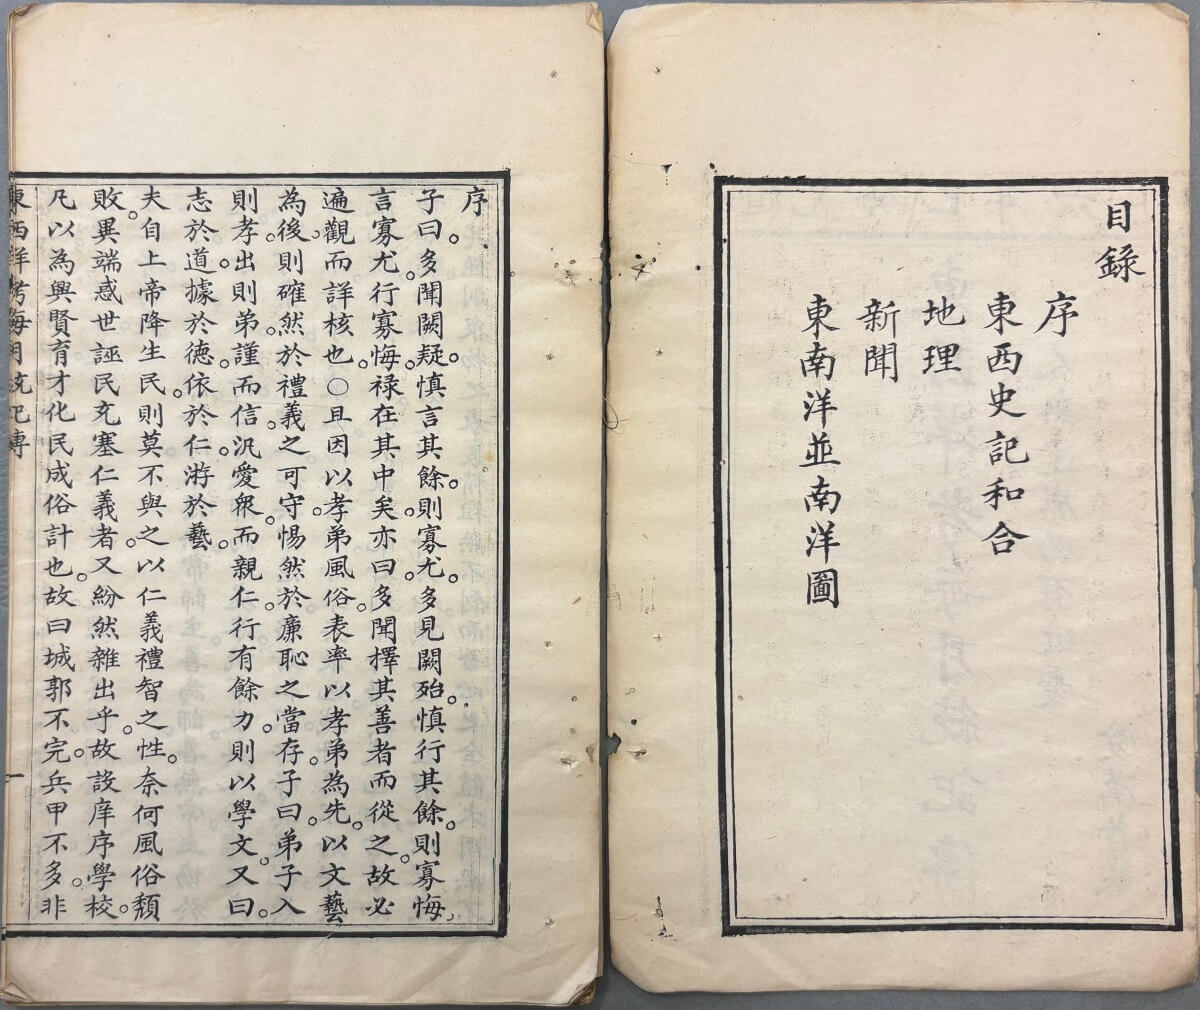 目錄
序
東西史記和合
地理
新聞
東南洋並南洋圖
序
子曰。多聞闕疑。慎言其餘。則寡尤。多見闕殆。慎行其餘。則寡悔。
言寡尤。行寡悔。祿在其中矣。亦曰。多聞擇其善者而從之。故必
遍觀而詳核也○且因以孝弟風俗。表率以孝弟為先。以文藝
為後。則確然於禮義之可守。惕然於廉恥之當存。子曰。弟子入
則孝。出則弟。謹而信。汎愛眾。而親仁。行有餘力。則以學文。又曰。
志於道。據於徳。依於仁。游於藝。
夫自上帝降生民。則莫不與之以仁義禮智之性。奈何風俗頹
敗。異端惑世誣民。充塞仁義者。又紛然雜出乎。故設庠序學校。
凡以為興賢育才。化民成俗計也。故曰城郭不完。兵甲不多。非
東西洋考每月統記傳
一